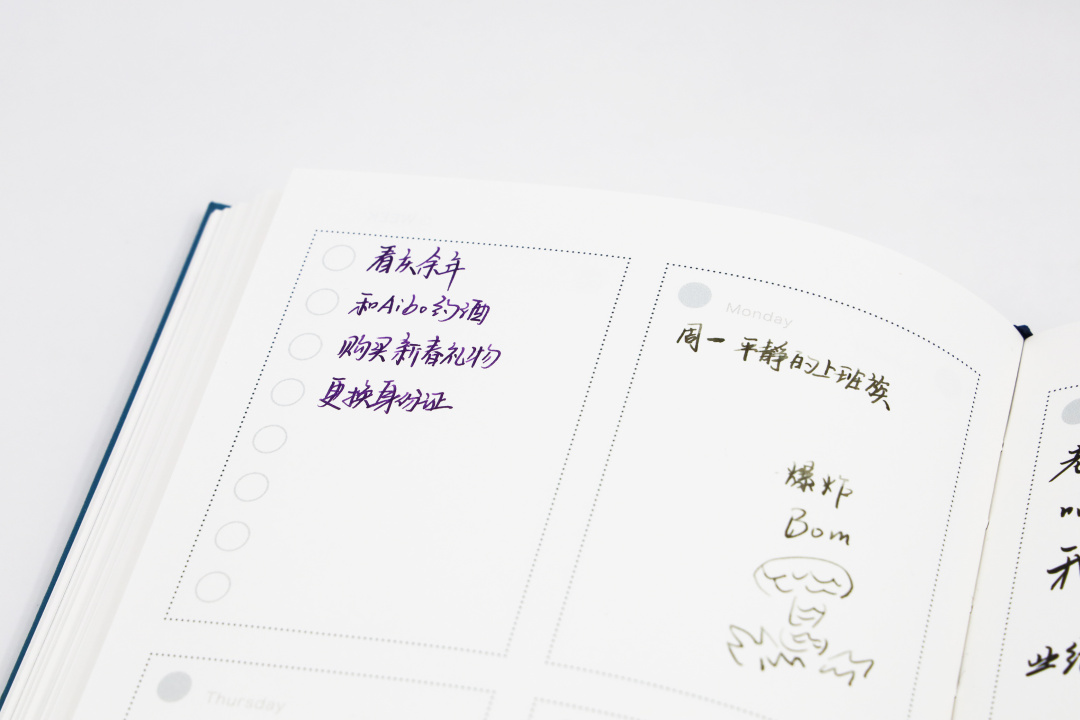 看庆余年
和Aibo约酒
购买新春礼物
更换身份证
Monday
周一 平静的上班族
爆炸
Bom
Thursday
我
些